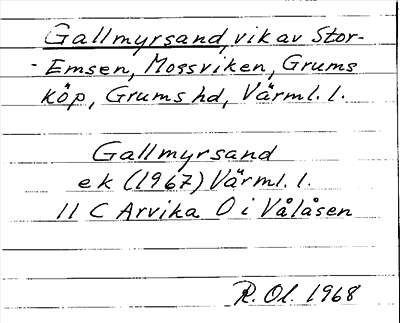 Gallmyrsand, vik av Stor-
-Emsen, Mossviken, Grums
köp, Grums hd, Värml. l.
Gallmyrsand
ek (1967) Värml. l.
11 C Arvika O i Vålåsen
R. Ol. 1968